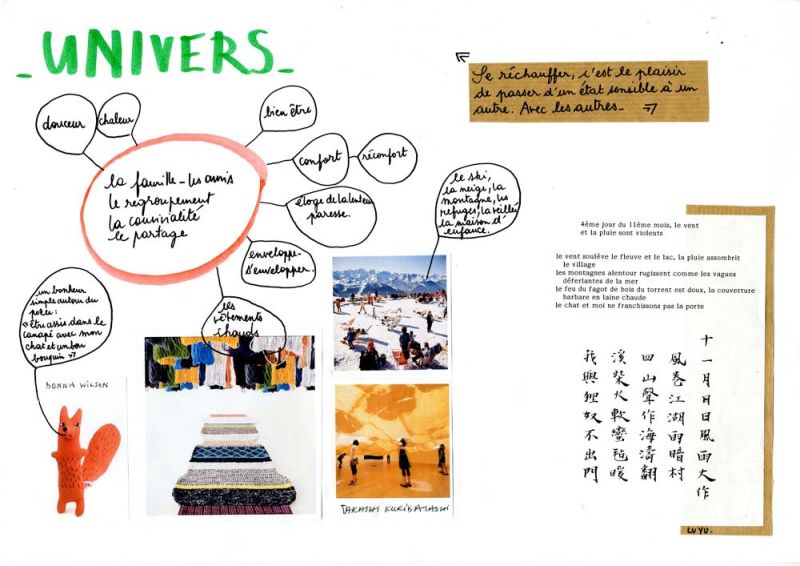 _UNIVERS_
Se réchauffer, c'est le plaisir
de passer d'un état sensible à un
autre. Avec les autres_
douceur
chaleur
bien être
confort
réconfort
la famille - les amis
le regroupement
la convivialité
le partage
éloge de la lenteur
paresse.
enveloppe-
s'envelopper.
les
vêtements
chauds
le ski,
la neige, la
montagne, les
refuges, la veillée
la maison d'
enfance.
un bonheur
simple autour du
poêle :
"être assis dans le
canapé avec mon
chat et un bon
bouquin"
DONNA WILSON
TAKASHI KURIBAYASHI
4ème jour du 11ème mois, le vent
et la pluie sont violents
le vent soulève le fleuve et le lac, la pluie assombrit
le village
les montagnes alentour rugissent comme les vagues
déferlantes de la mer
le feu du fagot de bois du torrent est doux, la couverture
barbare en laine chaude
le chat et moi ne franchissons pas la porte
十一月四日風雨大作
風卷江湖雨暗村
四山聲作海濤翻
溪柴火軟蠻毡暖
我與狸奴不出門
LU YU.